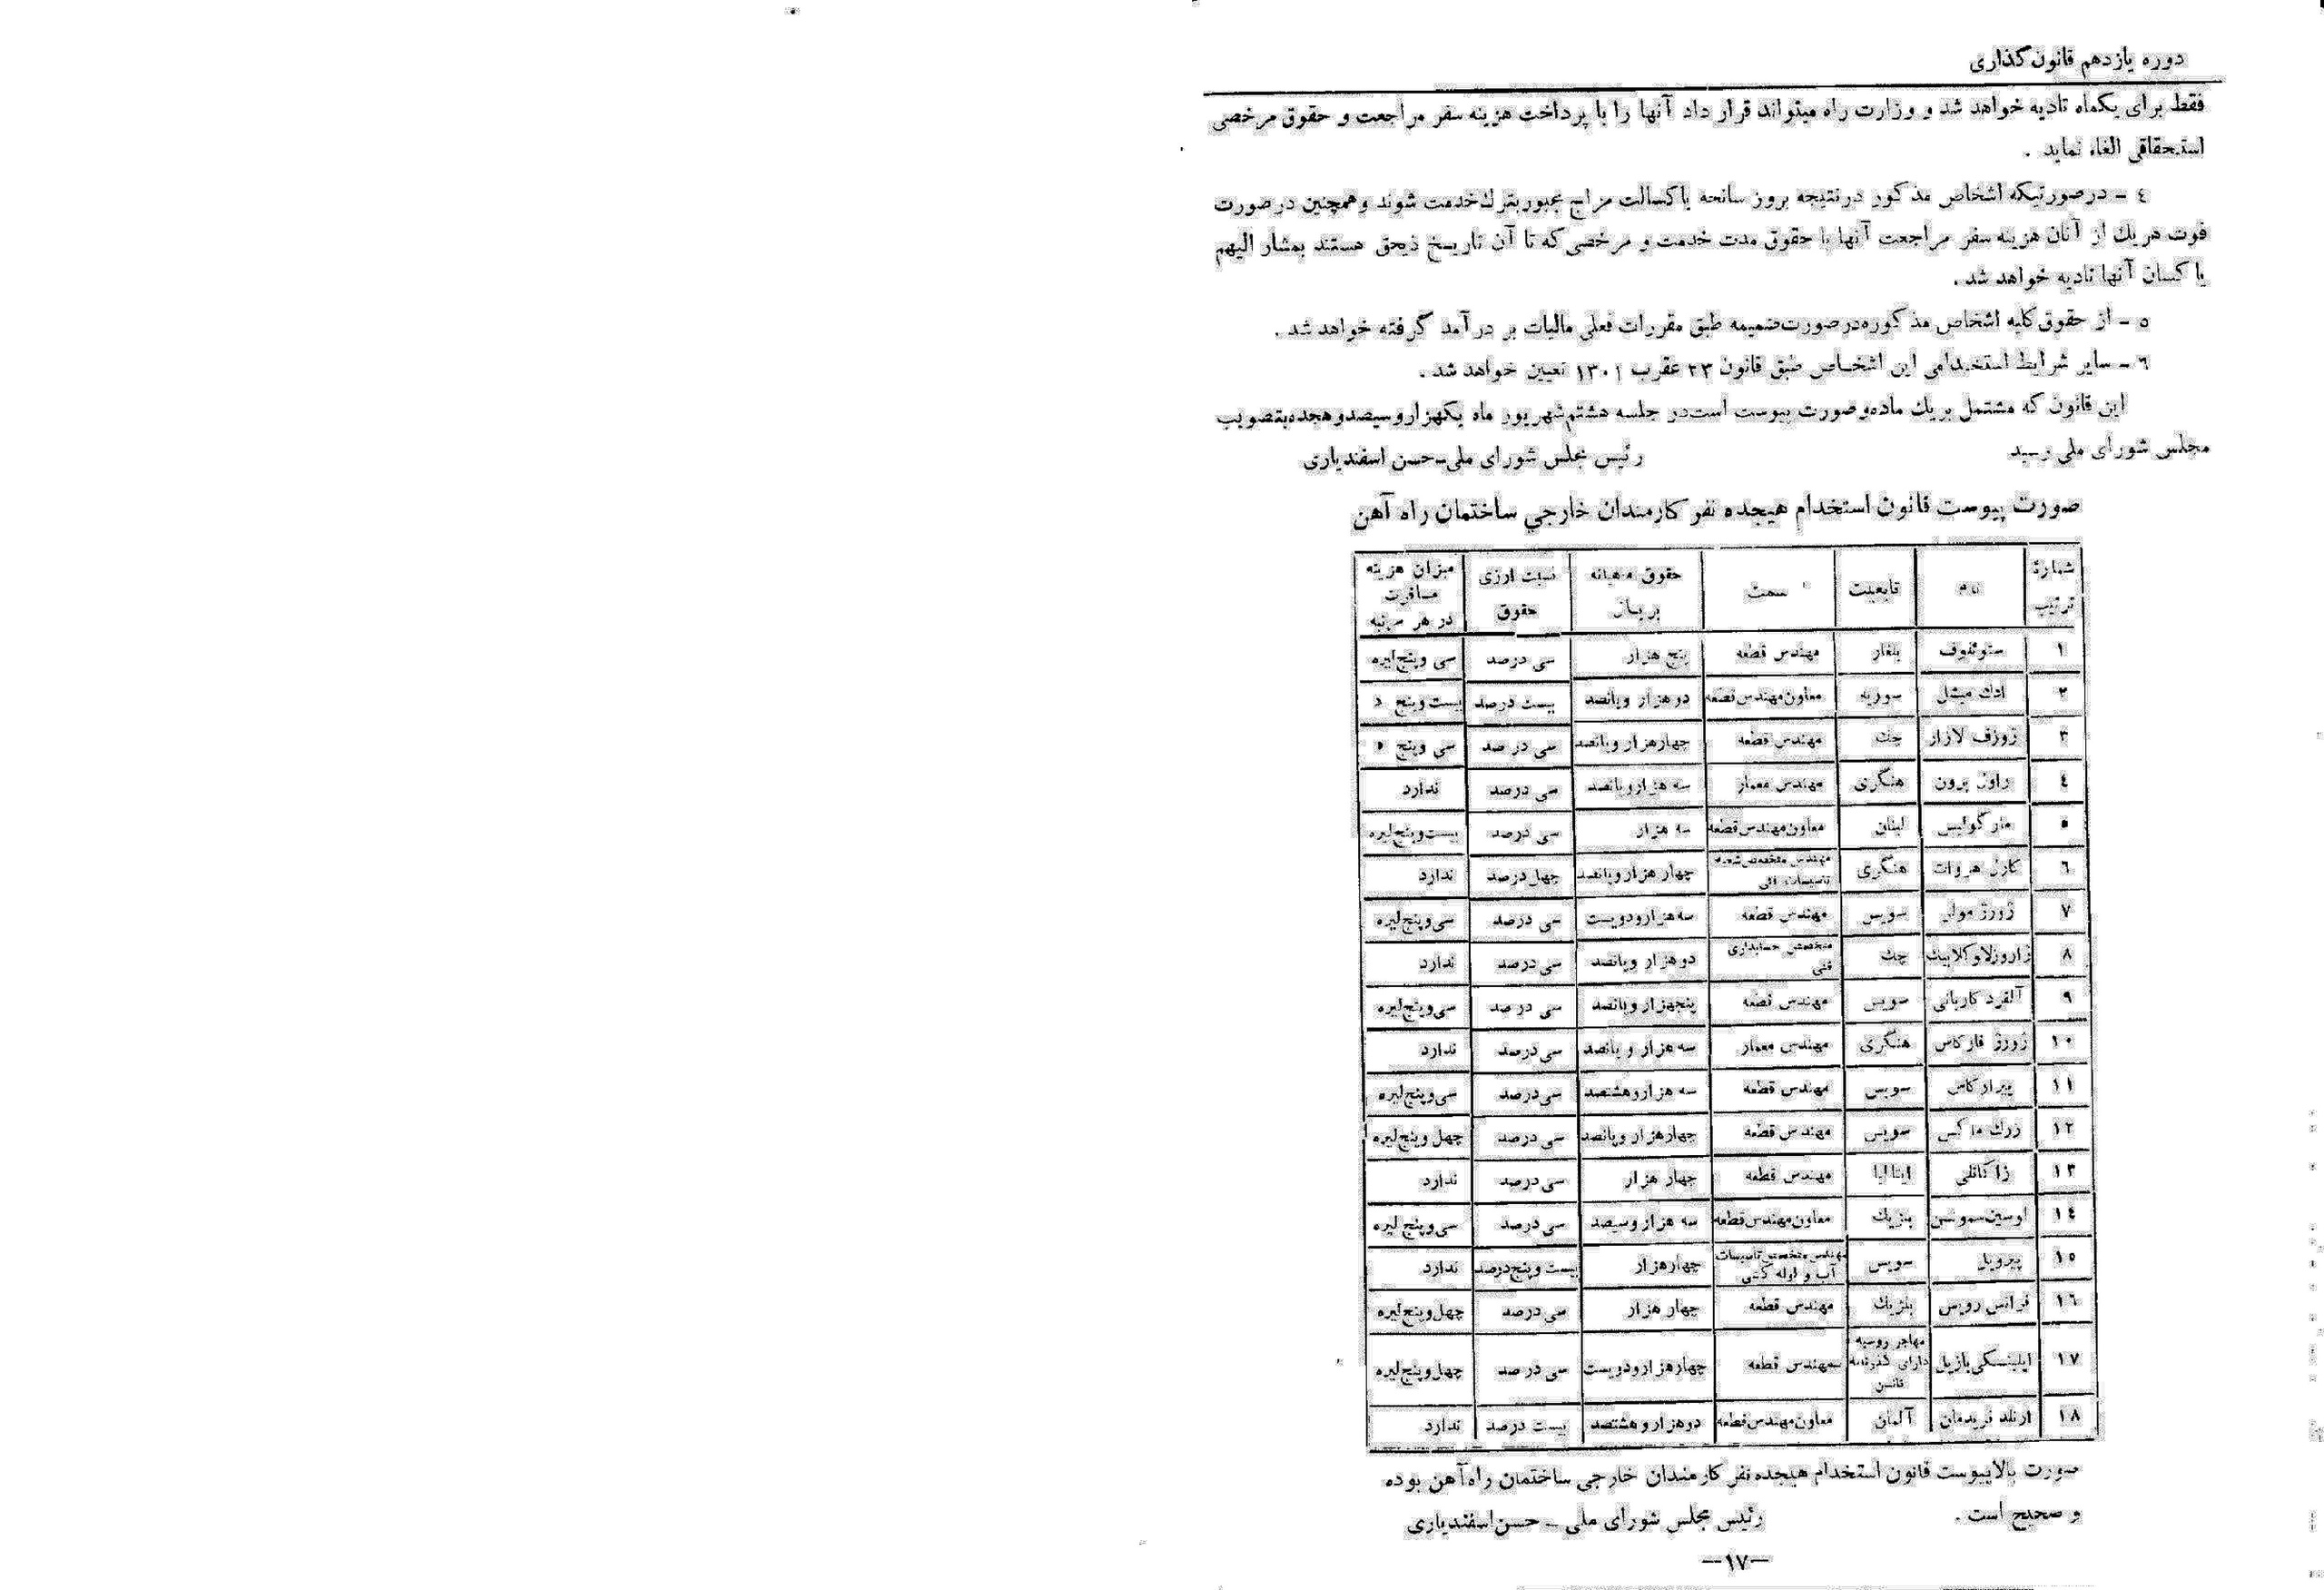 دوره یازدهم قانون‌گذاری
فقط برای یکماه تادیه خواهد شد و وزارت راه میتواند قرار داد آنها را با پرداخت هزینه سفر مراجعت و حقوق مرخصی
استحقاقی الغاء نماید .
٤ – درصورتیکه اشخاص مذکور درنتیجه بروز سانحه یاکسالت مزاج مجبوربترك‌خدمت شوند وهمچنین درصورت
فوت هریك از آنان هزینه سفر مراجعت آنها با حقوق مدت خدمت و مرخصی که تا آن تاریخ ذیحق هستند بمشار الیهم
یا کسان آنها تادیه خواهد شد .
٥ – از حقوق کلیه اشخاص مذکوره‌درصورت‌ضمیمه طبق مقررات فعلی مالیات بر درآمد گرفته خواهد شد .
٦ – سایر شرایط استخدامی این اشخاص طبق قانون ٢٣ عقرب ١٣٠١ تعیین خواهد شد .
این قانون که مشتمل بریك ماده‌و صورت پیوست است‌در جلسه هشتم‌شهریور ماه یکهزاروسیصدوهجده‌بتصویب
مجلس شورای ملی رسید رئیس مجلس شورای ملی–حسن اسفندیاری
صورت پیوست قانون استخدام هیجده نفر کارمندان خارجی ساختمان راه آهن
شمارهٔ ترتیب نام تابعیت سمت حقوق ماهیانه بریال نسبت ارزی حقوق میزان هزینه مسافرت در هر مرتبه
١ ستوئنوف بلغار مهندس قطعه پنج هزار سی درصد سی وپنج‌لیره
٢ ادك میشل سوریه معاون‌مهندس‌قطعه دوهزار وپانصد بیست درصد بیست‌وپنج د
٣ ژوزف لازار چك مهندس قطعه چهارهزار وپانصد سی در صد سی وپنج
٤ راول برون هنگری مهندس معمار سه هزاروپانصد سی درصد ندارد
٥ مارگولیس لبنان معاون‌مهندس‌قطعه سه هزار سی درصد بیست‌وپنج‌لیره
٦ کارل هروات هنگری مهندس متخصص‌شعبه تاسیسات فنی چهار هزاروپانصد چهل درصد ندارد
٧ ژورژ مولر سویس مهندس قطعه سه‌هزارودویست سی درصد سی‌وپنج‌لیره
٨ چك متخصص حسابداری فنی دوهزار وپانصد سی درصد ندارد
٩ آلفرد کاربانی سویس مهندس قطعه پنجهزاروپانصد سی در صد سی‌وپنج‌لیره
١٠ ژورژ فارکاس هنگری مهندس معمار سه هزار و پانصد سی‌درصد ندارد
١١ پیرارکاس سویس مهندس قطعه سه هزاروهشتصد سی‌درصد سی‌وپنج‌لیره
١٢ زرك ماکس سویس مهندس قطعه چهارهزار وپانصد سی درصد چهل وپنج‌لیره
١٣ ژاکانلی ایتالیا مهندس قطعه چهار هزار سی درصد ندارد
١٤ لوسین‌سمونسن بلژیك معاون‌مهندس‌قطعه سه هزاروسیصد سی درصد سی‌وپنج لیره
١٥ پیرویل سویس مهندس متخصص‌تاسیسات آب و لوله کشی چهارهزار بیست وپنج‌درصد ندارد
١٦ فرانس رویس بلژیك مهندس قطعه چهار هزار سی درصد چهل‌وپنج‌لیره
١٧ ایلینسکی‌بازیل مهاجر روسیه دارای گذرنامه نانسن مهندس قطعه چهارهزارودویست سی در صد چهل‌وپنج‌لیره
١٨ ارنلد فریدمان آلمان معاون‌مهندس‌قطعه دوهزاروهشتصد بیست درصد ندارد
صورت بالاپیوست قانون استخدام هیجده‌نفر کارمندان خارجی ساختمان راه‌آهن بوده
و صحیح است . رئیس مجلس شورای ملی – حسن‌اسفندیاری
—١٧—